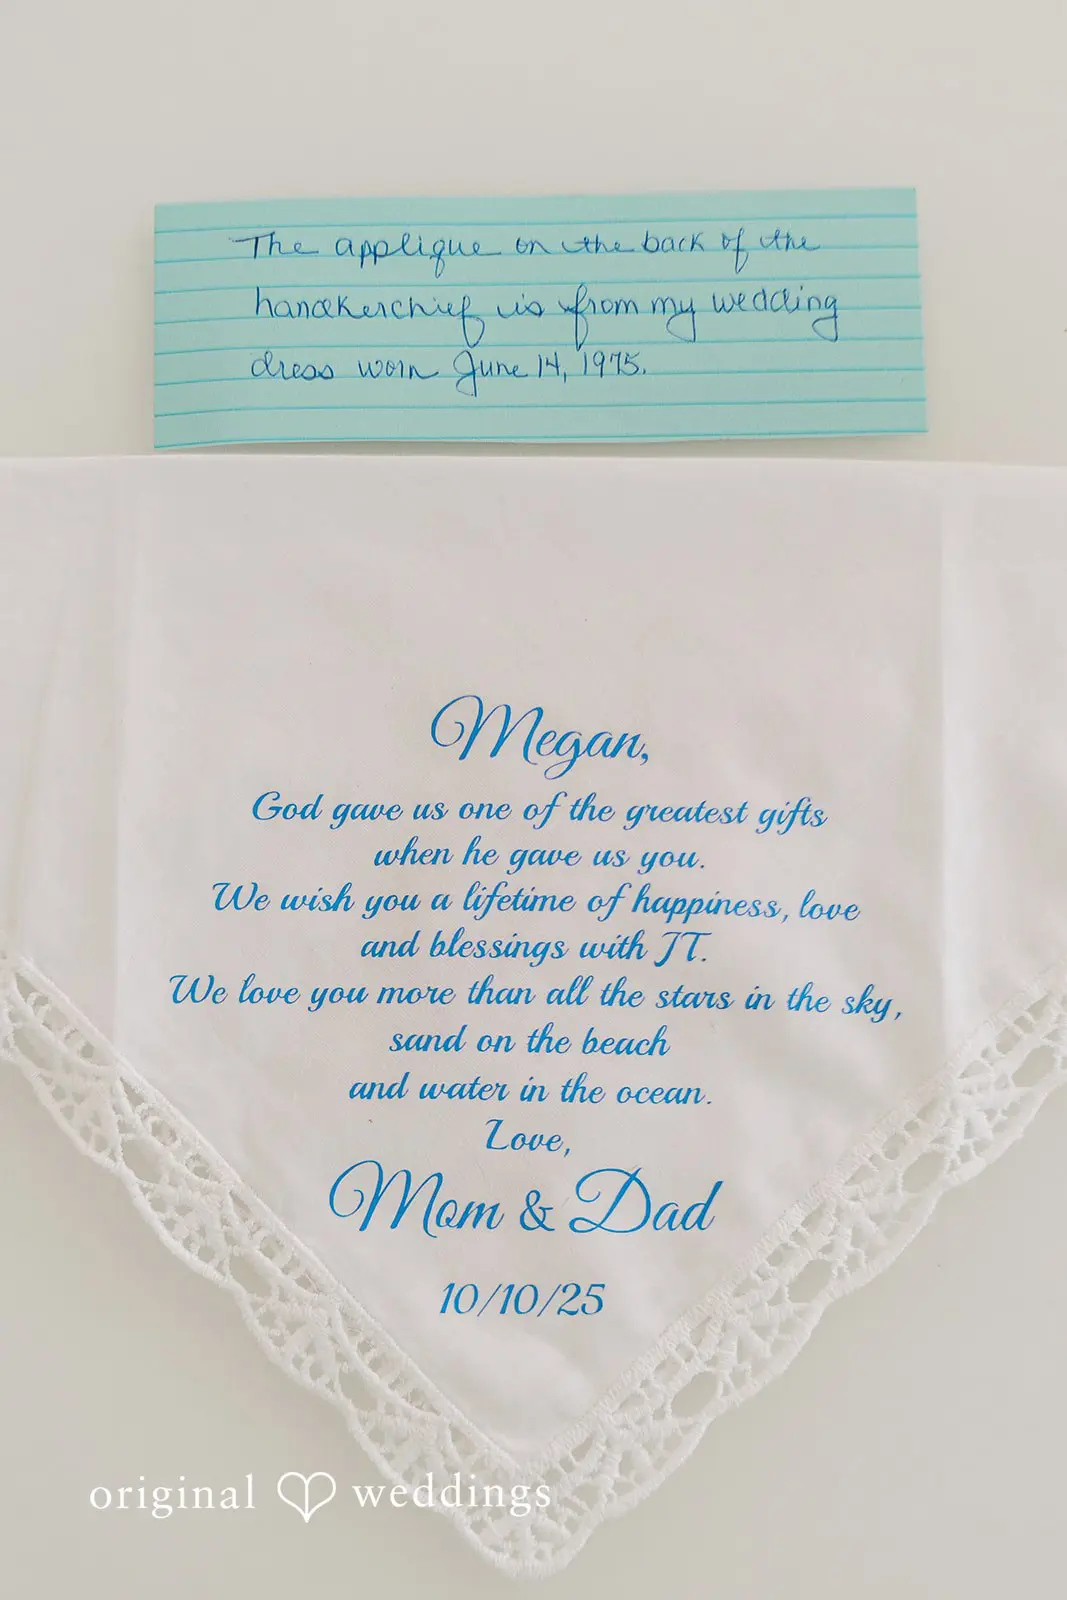 The applique on the back of the
handkerchief is from my wedding
dress worn June 14, 1975.
Megan,
God gave us one of the greatest gifts
when he gave us you.
We wish you a lifetime of happiness, love
and blessings with JT.
We love you more than all the stars in the sky,
sand on the beach
and water in the ocean.
Love,
Mom & Dad
10/10/25
original weddings